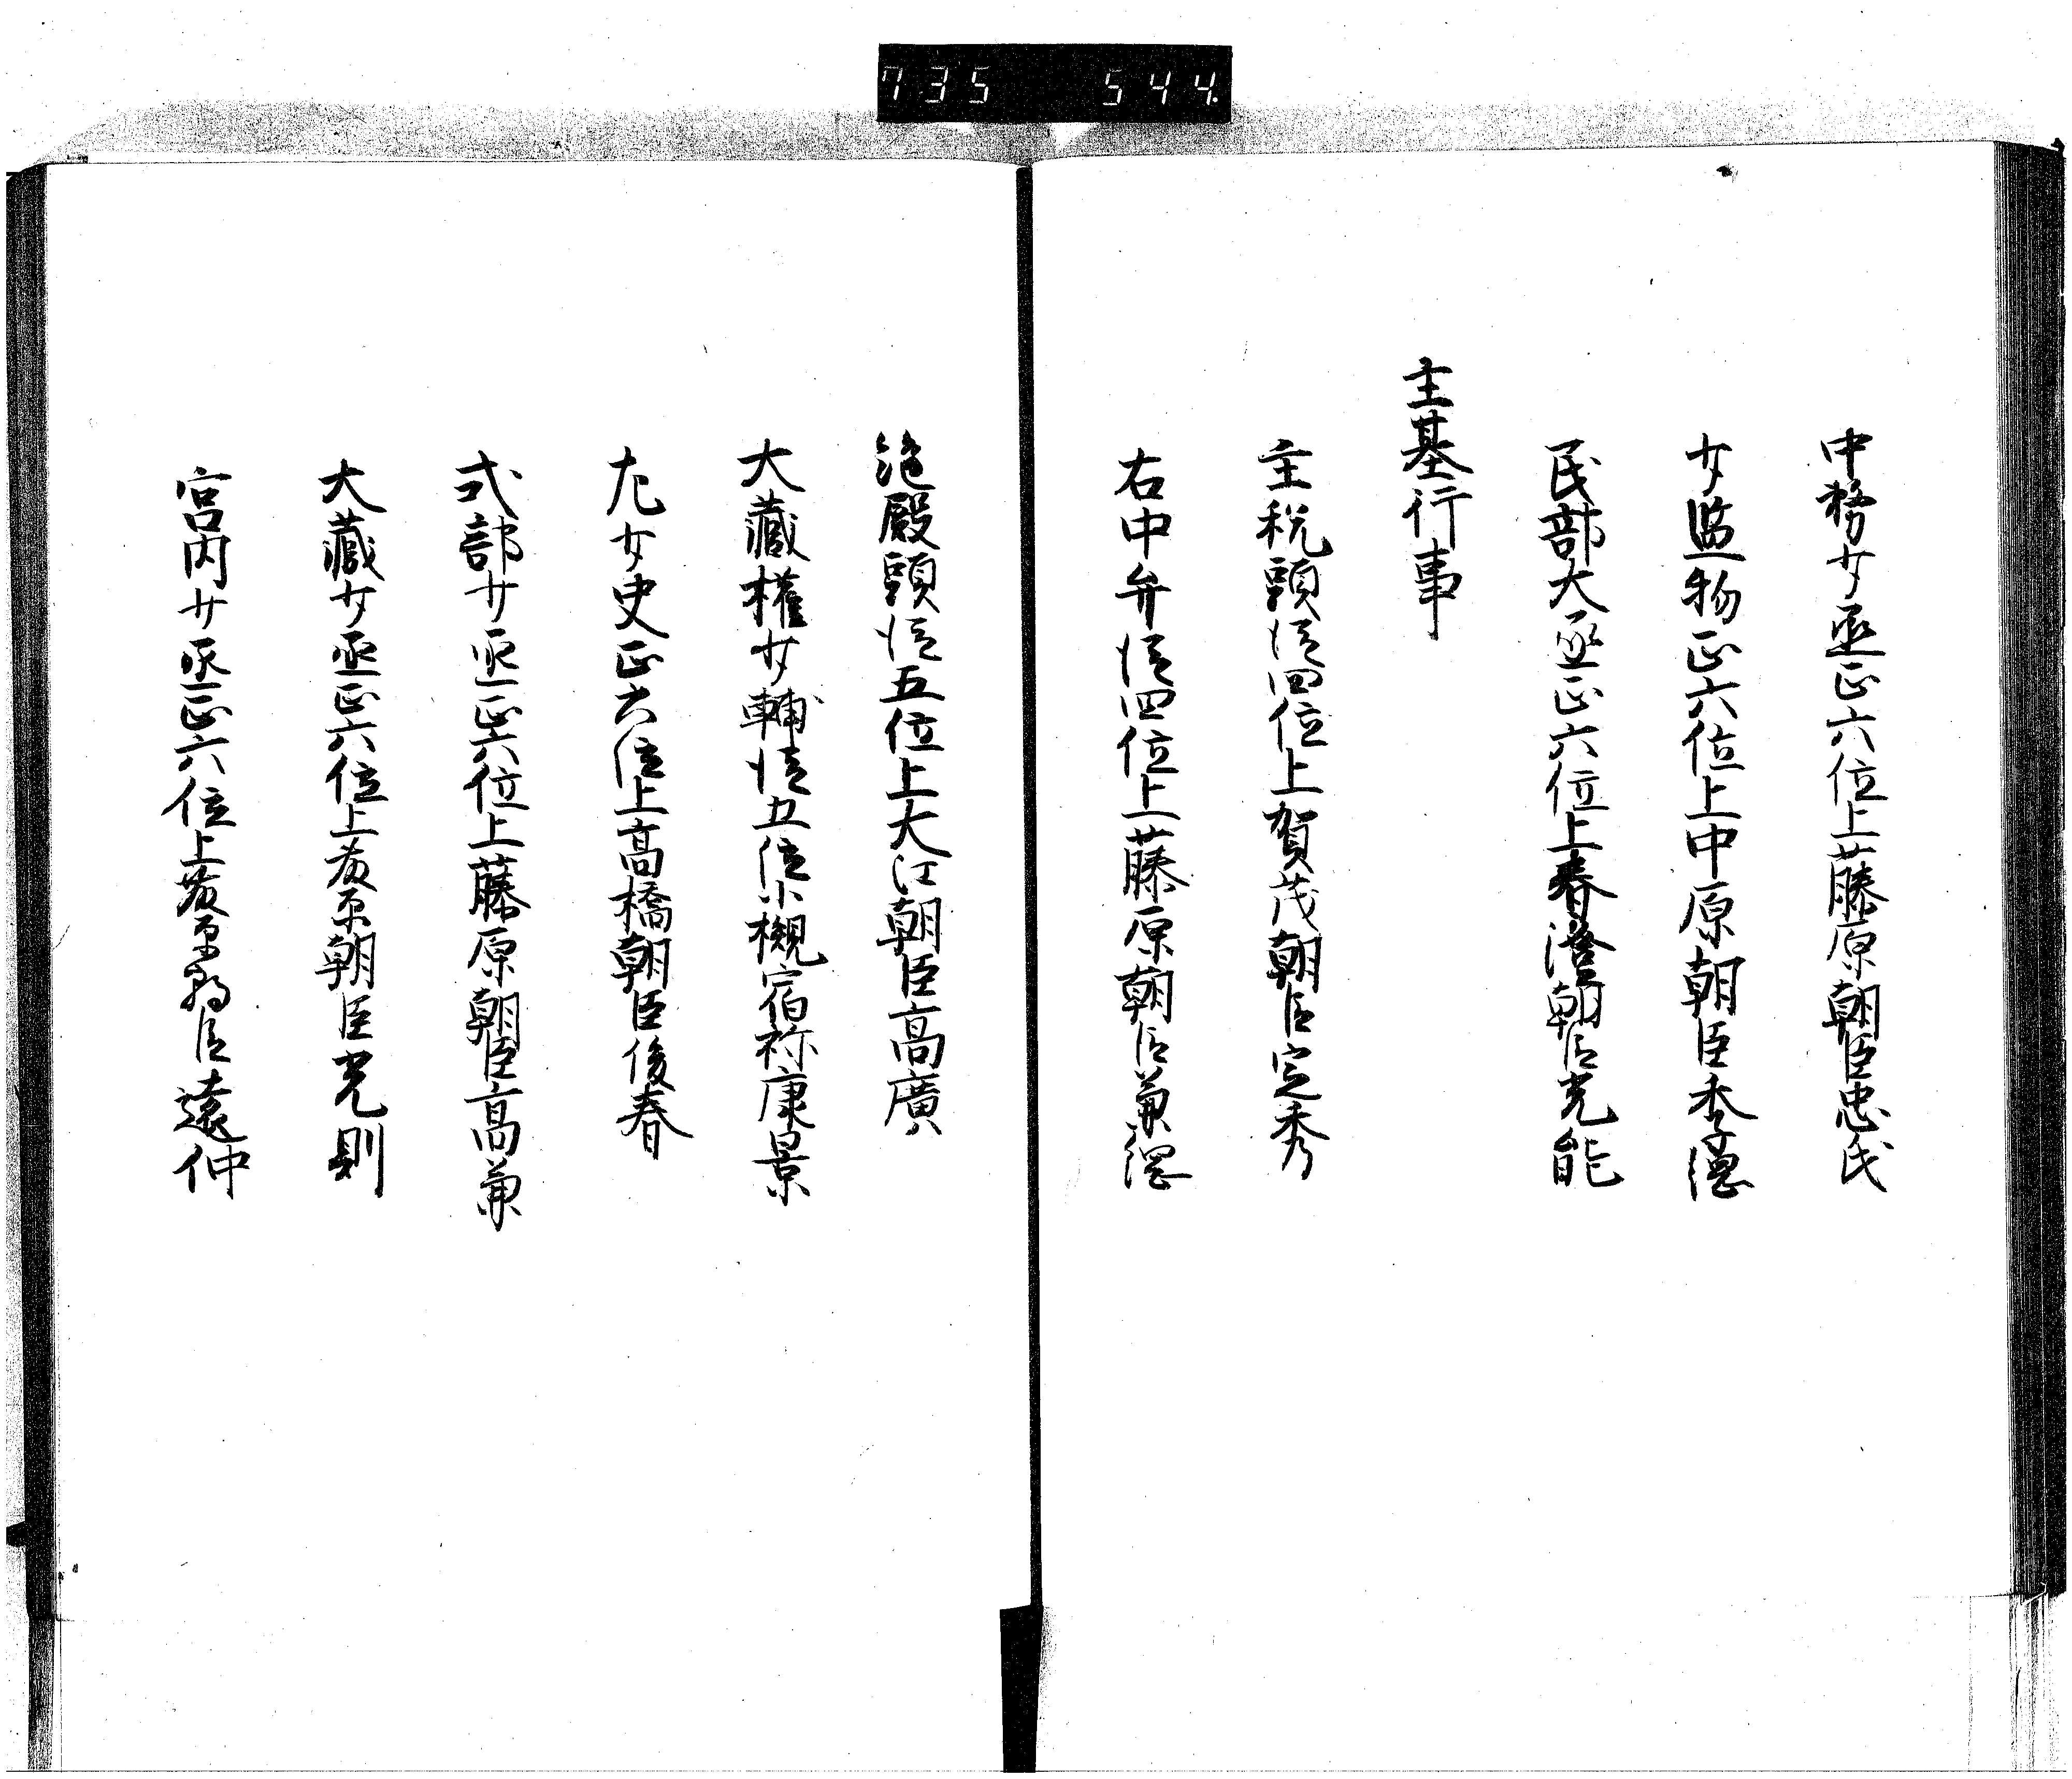 735 544
中務少丞正六位上藤原朝臣忠氏
少監物正六位上中原朝臣季德
民部大丞正六位上春澄朝臣光能
主基行事
主税頭從四位上賀茂朝臣定秀
右中弁從四位上藤原朝臣兼
殿頭從五位上大江朝臣高廣
大藏權少輔從五位小槻宿祢康景
左少史正六位上高橋朝臣俊春
式部少丞正六位上藤原朝臣高兼
大藏少丞正六位上藤原朝臣光則
宮内少丞正六位上藤原朝臣遠仲